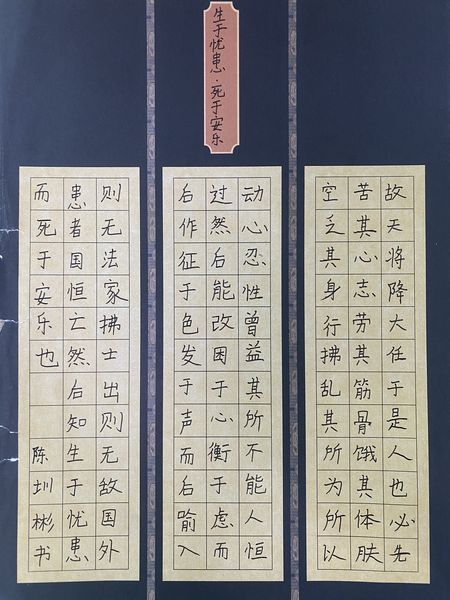 生于忧患·死于安乐
故天将降大任于是人也必先
苦其心志劳其筋骨饿其体肤
空乏其身行拂乱其所为所以
动心忍性曾益其所不能人恒
过然后能改困于心衡于虑而
后作征于色发于声而后喻入
则无法家拂士出则无敌国外
患者国恒亡然后知生于忧患
而死于安乐也
陈圳彬书